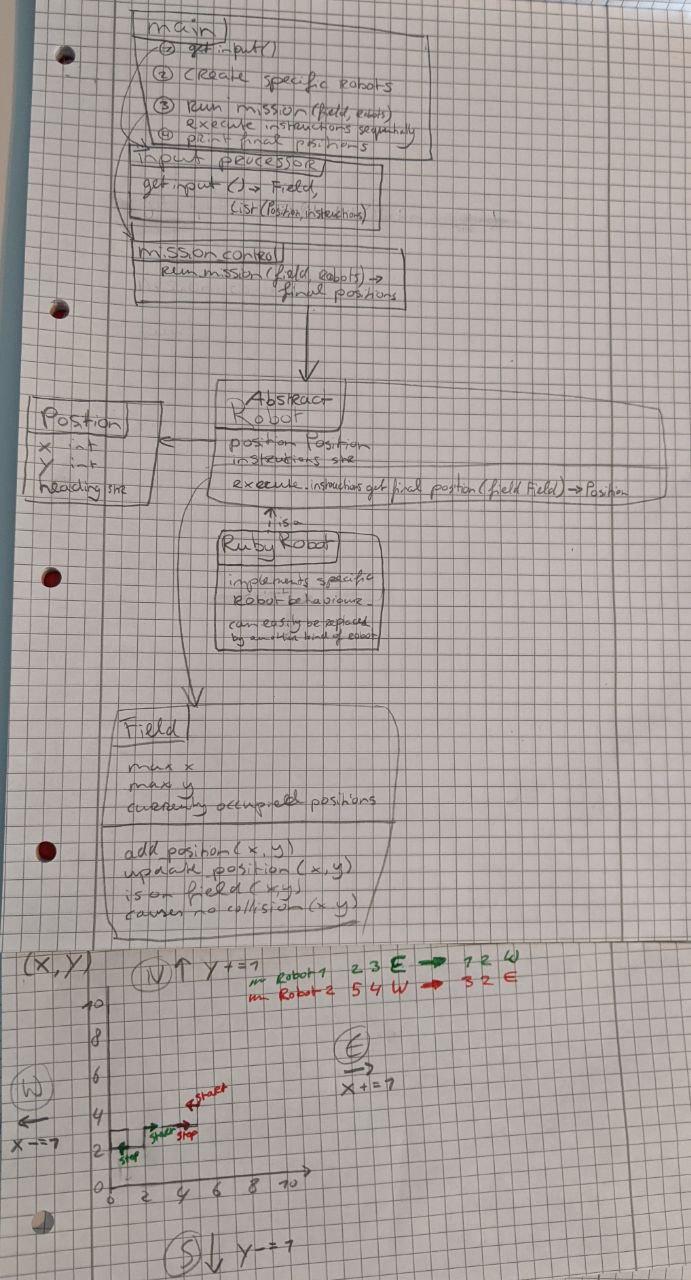 main
① get input()
② Create specific Robots
③ Run mission(field, robots)
execute instructions sequentially
④ print final positions
input processor
get input () → Field,
List(Position, instructions)
mission control
Run mission(field, Robots) →
final positions
Abstract
Robot
position Position
instructions str
execute instructions get final position (field Field) → Position
Position
x int
y int
heading str
is a
Ruby Robot
implements specific
Robot behaviour
can easily be replaced
by another kind of robot
Field
max x
max y
currently occupied positions
add position (x, y)
update position (x, y)
is on field (x, y)
causes no collision (x y)
(X, Y)
N ↑ Y += 1
Robot 1 2 3 E → 1 2 W
Robot 2 5 4 W → 3 2 E
10
8
6
4
2
0
0 2 4 6 8 10
W
←
X -= 1
E
→
X += 1
Start
Start
Stop
Stop
S ↓ Y -= 1